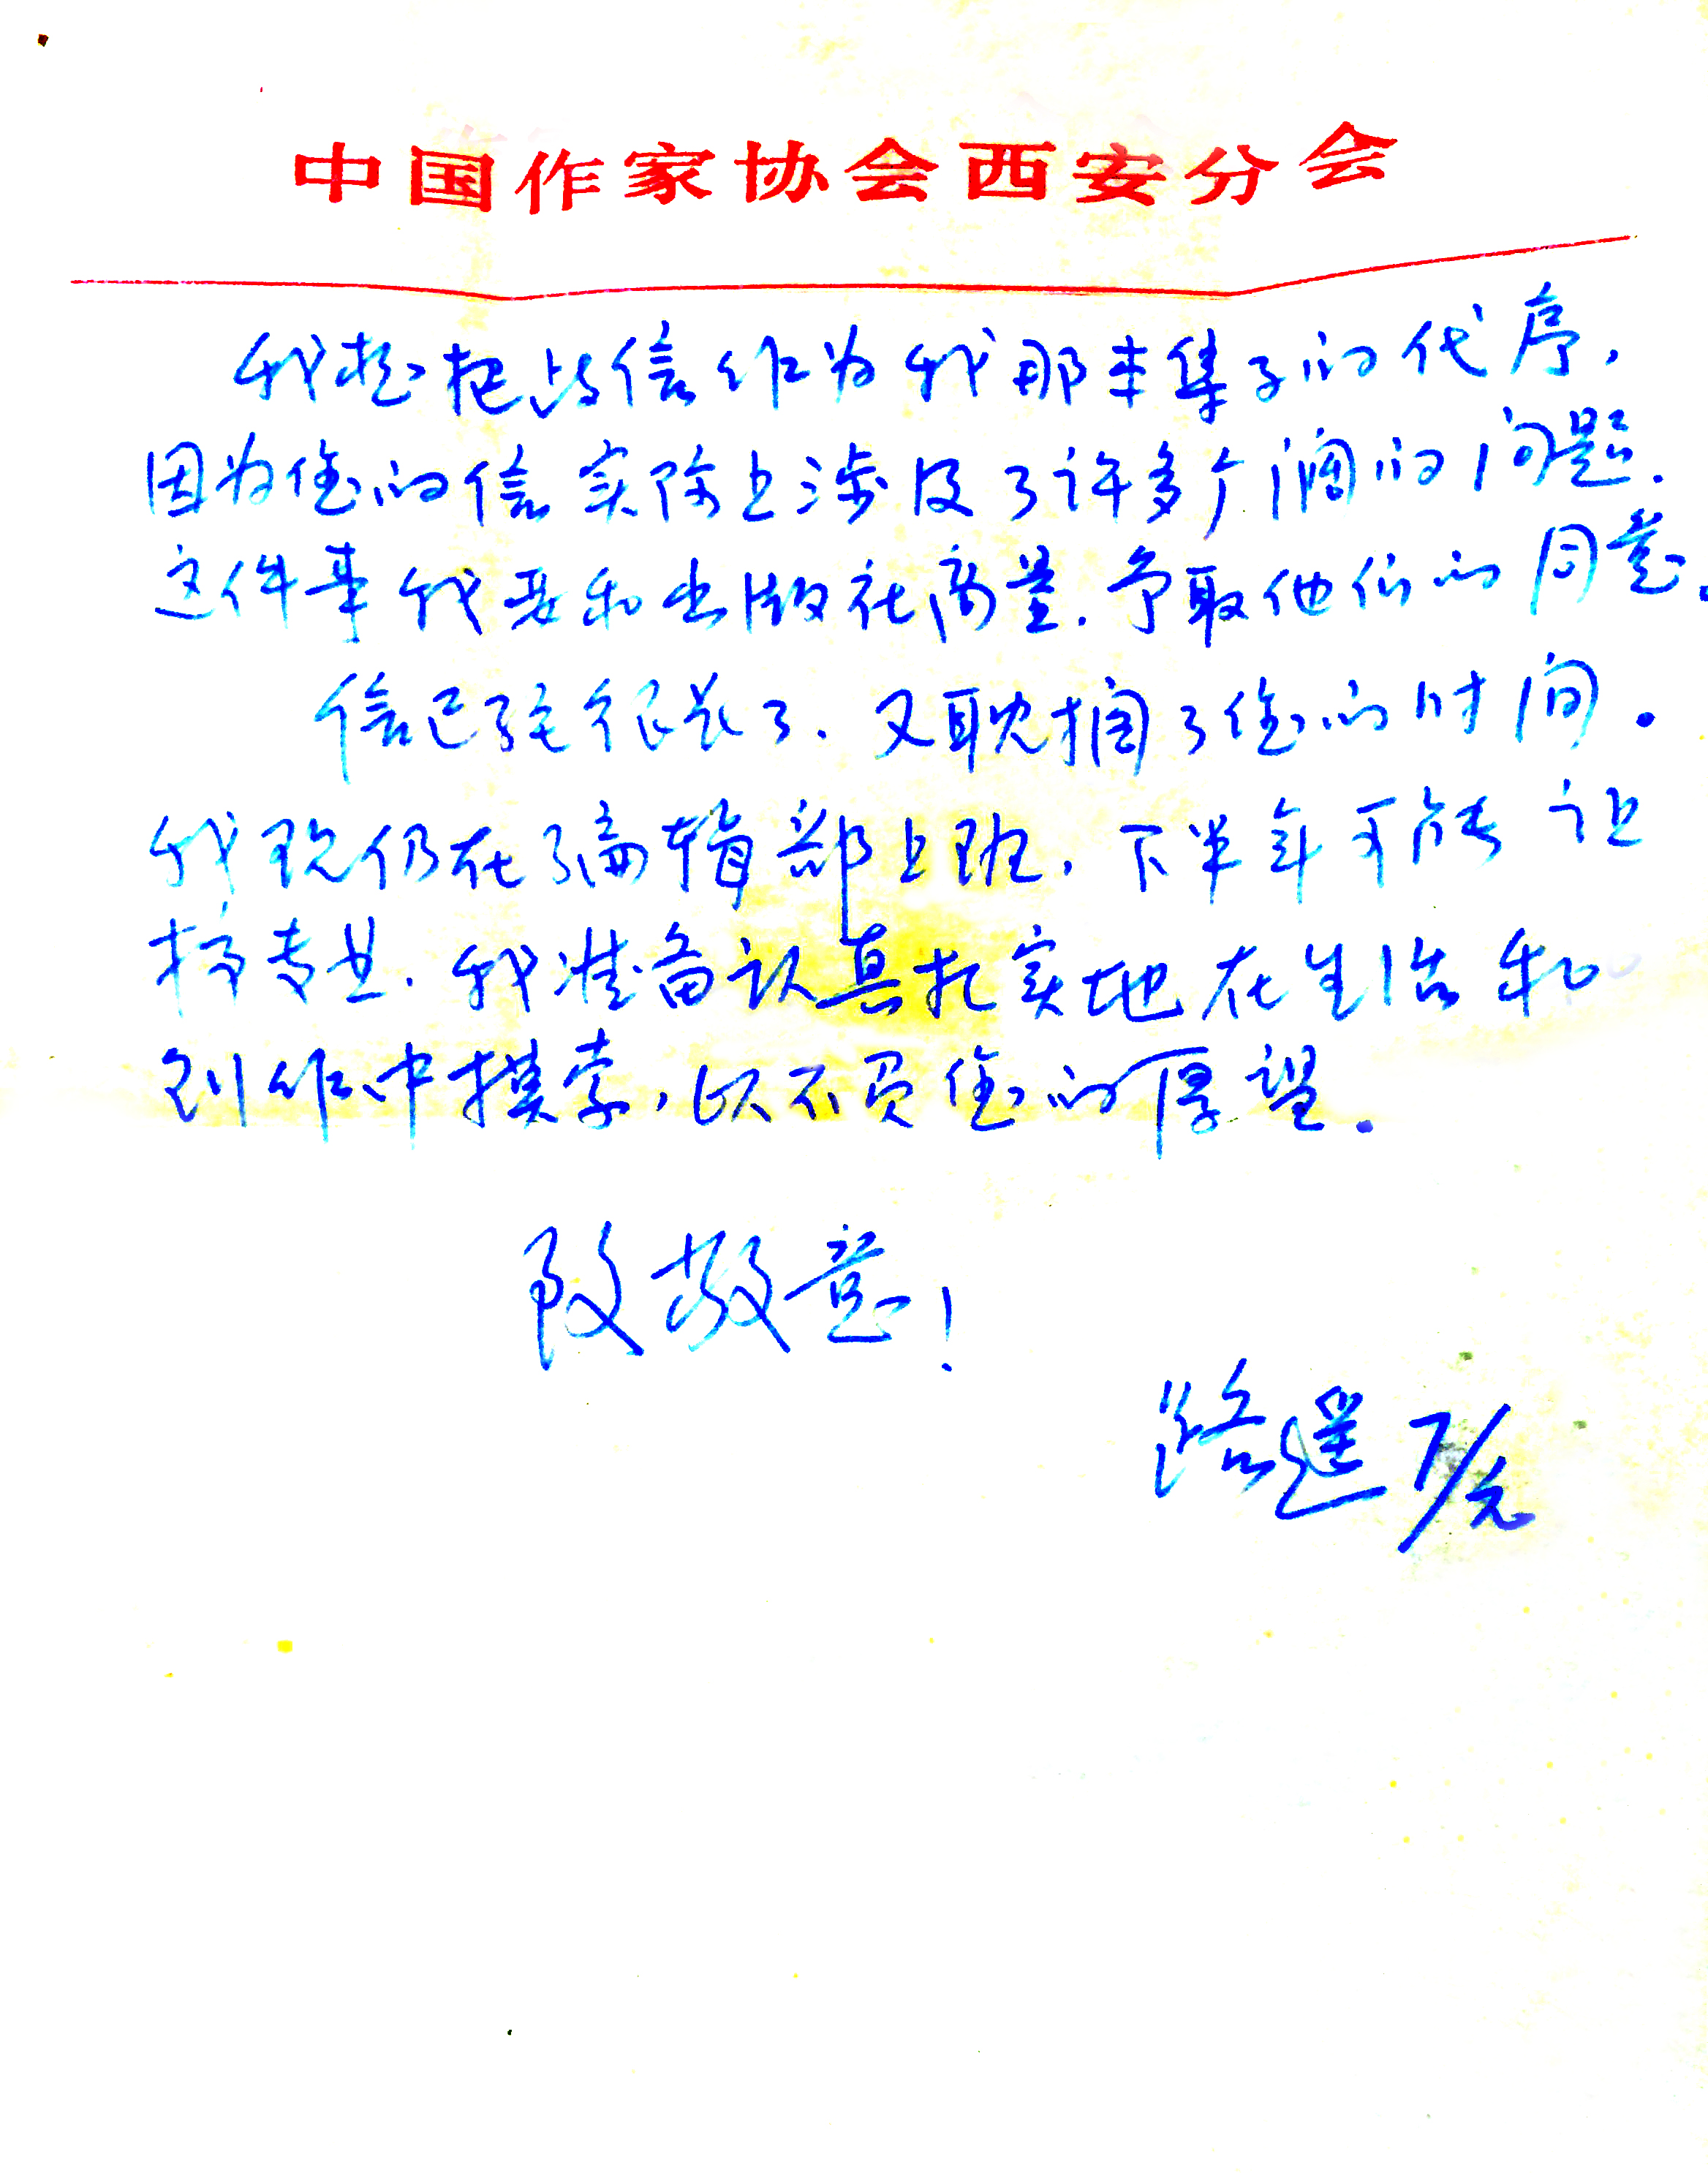 中国作家协会西安分会
我想把此信作为我那本集子的代序,
因为您的信实际上涉及了许多个阔的问题.
这件事我要和出版社商量.争取他们的同意.
信已经很长了、又耽搁了您的时间。
我现仍在编辑部上班,下半年可能让
搞专业.我准备认真扎实地在生活和
创作中摸索,以不负您的厚望.
致敬意!
路遥